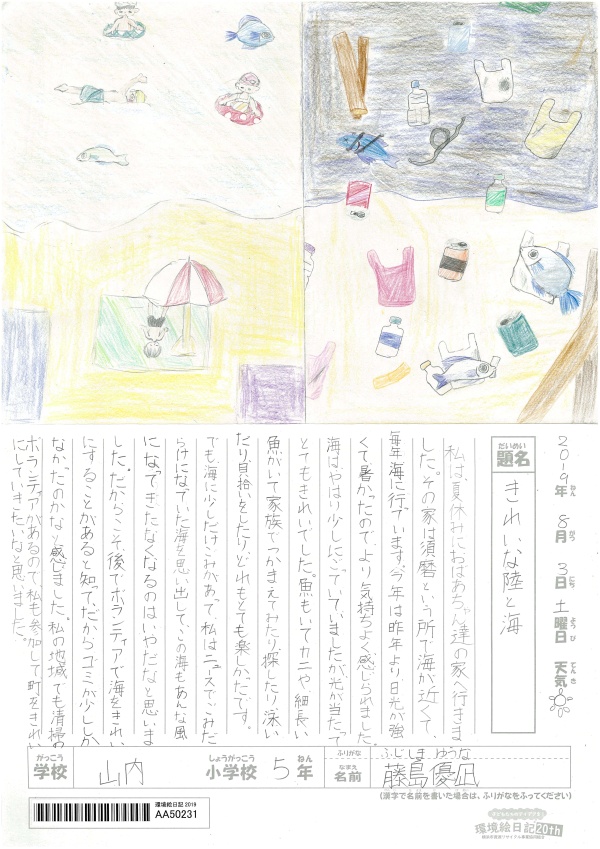 2019年 8月 3日 土曜日 天気
ねん がつ にち よう び てんき
だいめい
題名
きれいな陸と海
私は、夏休みにおばあちゃん達の家へ行きま
した。その家は須磨という所で、海が近くて、
毎年海に行ています。今年は昨年より、日光が強
くて暑かったので、より気持ちよく感じられました。
海はやはり少しにごていていましたが光が当たって
とてもきれいでした。魚もいてカニや、細長い
魚がいて家族でつかまえてみたり、探したり、泳い
だり、貝拾いをしたりどれもとても楽しかたです。
でも海に少しだけごみがあって、私はニュースでごみだ
らけになていた海を思い出して、この海もあんな風
になてきたなくなるのはいやだなと思いま
した。だからこそ、後でボランティアで海をきれい
にすることがあると知て、だからゴミが少ししか
なかたのかなと感じました。私の地域でも清掃の
ボランティアがあるので、私も参加して町をきれい
にしていきたいなと思いました。
がっこう
学校
山内
しょうがっこう
小学校
5年
ねん
ふりがな
ふじしま ゆうな
なまえ
名前
藤島優凪
(漢字で名前を書いた場合は、ふりがなをふってください)
環境絵日記 2019
AA50231
環境絵日記 20th